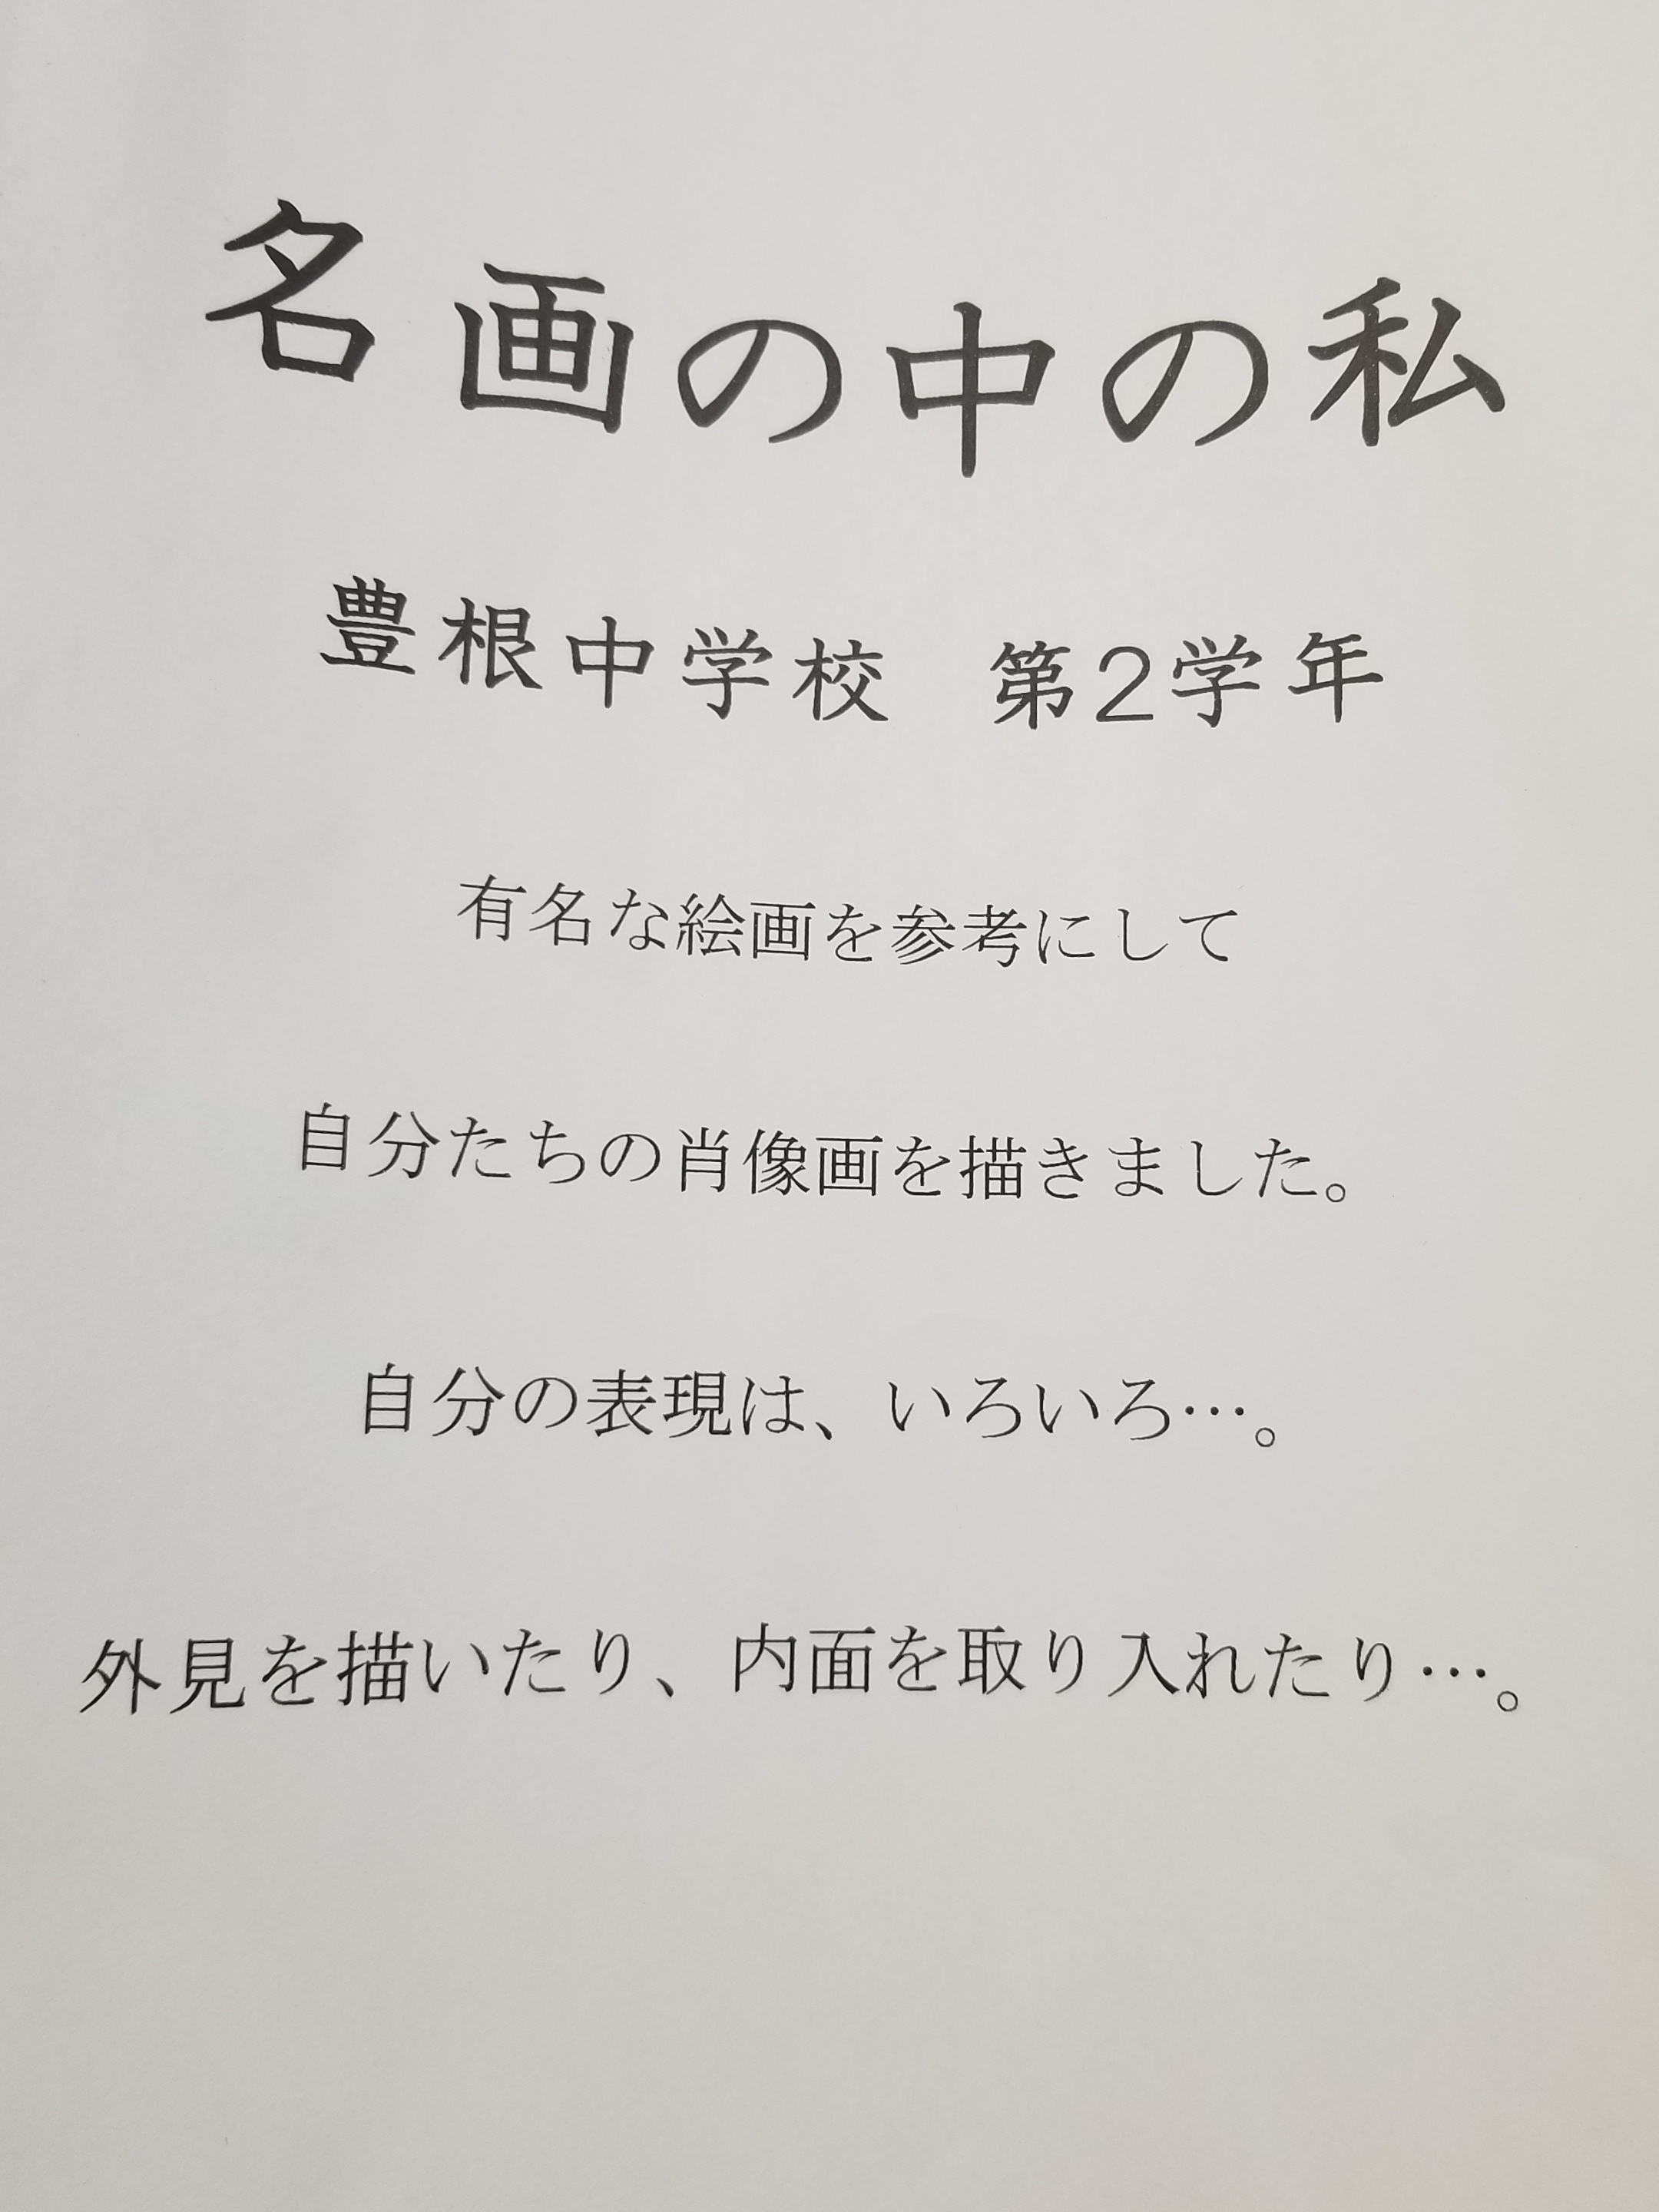 名画の中の私
豊根中学校　第2学年
有名な絵画を参考にして
自分たちの肖像画を描きました。
自分の表現は、いろいろ…。
外見を描いたり、内面を取り入れたり…。